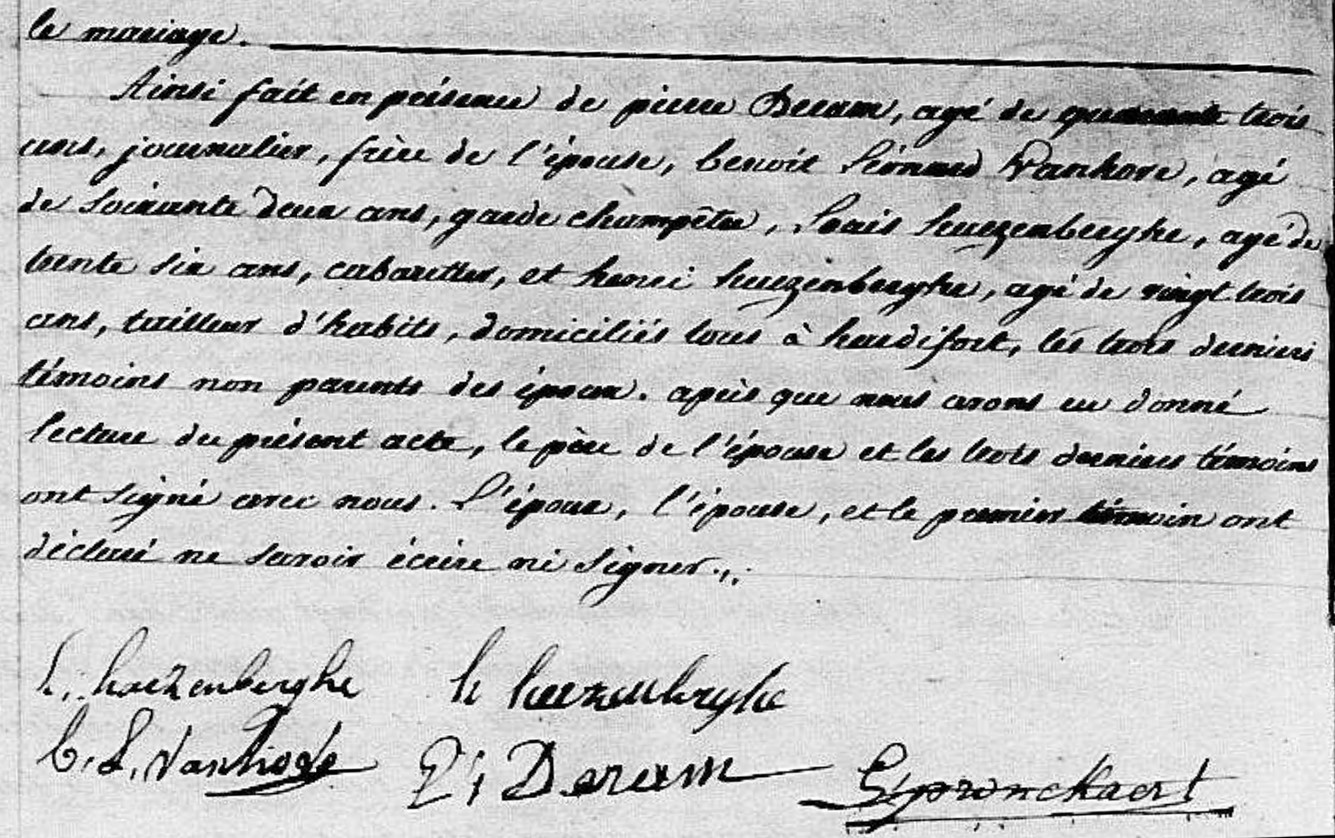 le mariage.
Ainsi fait en présence de pierre Deram, agé de quarante trois
ans, journalier, frère de l'épouse, benoit Vanhove, agé
de soixante deux ans, garde champêtre, Louis haezenberghe, agé de
trente six ans, cabarettier, et henri haezenberghe, agé de vingt trois
ans, tailleur d'habits, domiciliés tous à hardifort, les trois derniers
témoins non parents des époux. après que nous avons eu donné
lecture du présent acte, le père de l'épouse et les trois derniers témoins
ont signé avec nous. L'époux, l'épouse, et le premier témoin ont
déclaré ne savoir écrire ni signer.
L. haezenberghe h haezenberghe
Deram